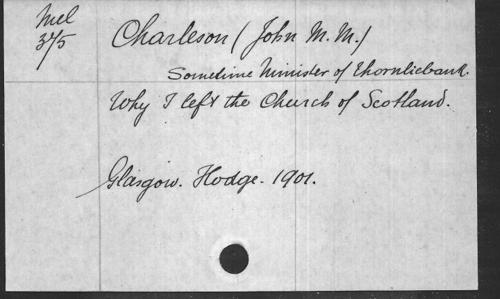 Mel
375
Charleson (John M. M.)
Sometime Minister of Thornliebank.
Why I left the Church of Scotland.
Glasgow. Hodge. 1901.